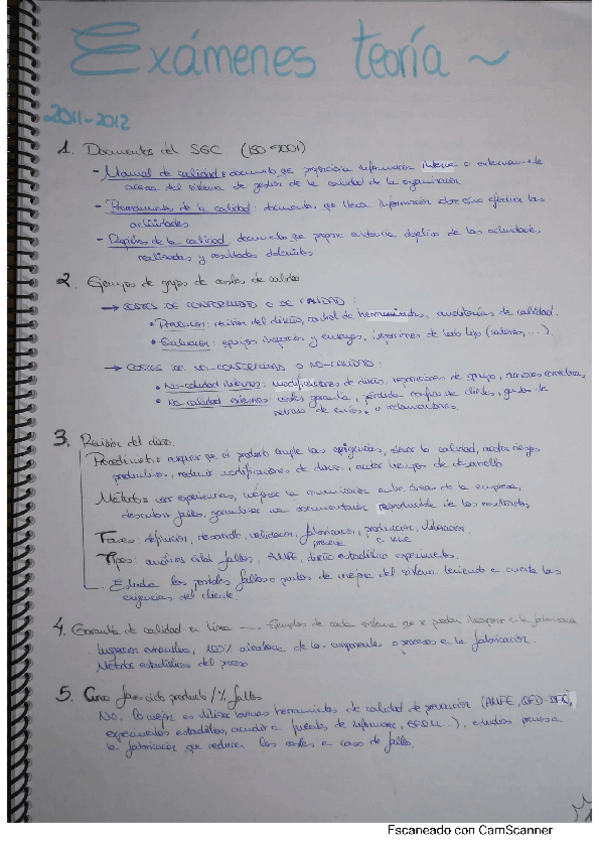 Exámenes teoría ~
2011-2012
1. Documentos del SGC (ISO 9001)
- Manual de calidad: documento que proporciona información interna o externamente
acerca del sistema de gestión de la calidad de la organización
- Procedimientos de la calidad: documentos que lleva información sobre cómo efectuar las
actividades
- Registros de la calidad documentos que evidencia objetiva de las actividades
realizadas y resultados obtenidos
2. Ejemplos de grupos de costes de calidad
→ COSTES DE CONFORMIDAD O DE CALIDAD:
• Prevención: revisión del diseño, control de herramientas, auditorías de calidad.
• Evaluación: equipos inspección y ensayos, inspecciones de
→ COSTES DE NO-CONFORMIDAD O NO-CALIDAD:
• No-calidad interna: modificaciones de diseño, reparaciones de
• No calidad externa: costes garantía, pérdida confianza de clientes, gastos de
retraso de envíos, o reclamaciones.
3. Revisión del diseño.
asegurar que el producto cumple las exigencias, la calidad,
productivos, reducir modificaciones de diseño, acortar tiempos de desarrollo
Métodos: usar experiencias, mejorar la comunicación entre áreas de la empresa,
descubrir fallos, garantizar una documentación reproducible de los resultados,
Fases: definición, desarrollo, validación, fabricación, producción,
Tipos: análisis fallos, AMFE, diseño estadístico experimentos.
- Estudia los posibles fallos o puntos de mejora del sistema teniendo en cuenta las
exigencias del cliente
4. Garantía de calidad en línea — Ejemplos de cada sistema que se pueden en la fabricación
100% de los componentes o procesos en la fabricación.
Métodos estadísticos del proceso
5. Curva fases ciclo producto / % fallos
No, lo mejor es utilizar herramientas de calidad de prevención (AMFE, QFD,
experimentos estadísticos, acudir a fuentes de información, ...), estudios previos a
la fabricación que reducen los costes en caso de fallo.
Escaneado con CamScanner